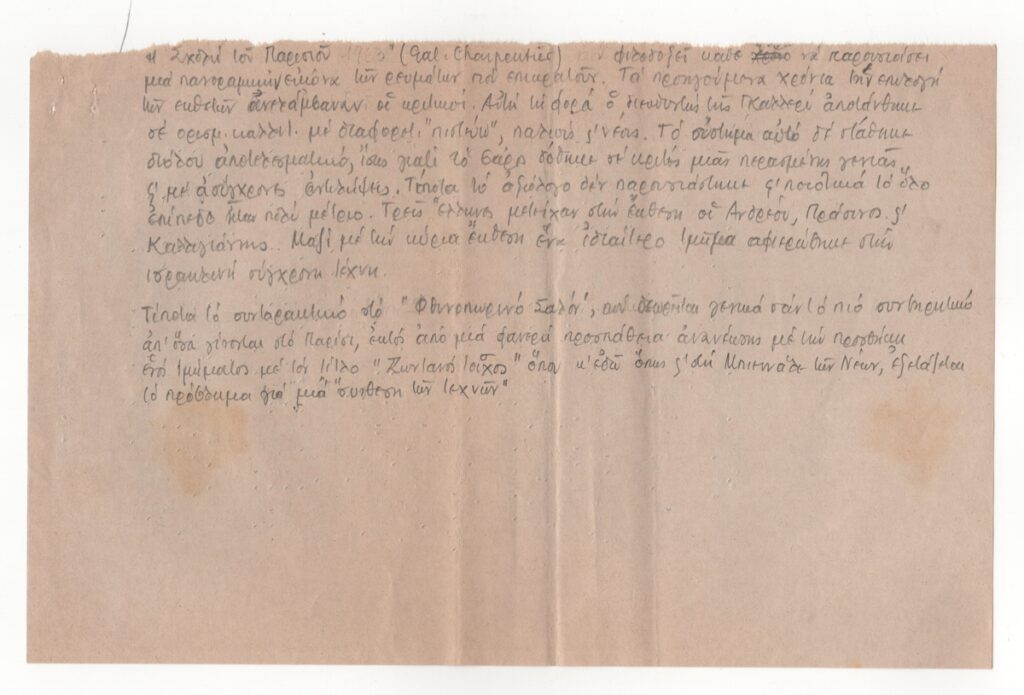 ἡ Σχολή τοῦ Παρισιοῦ 1963" (Gal. Charpentier) φιλοδοξεῖ κάθε νά παρουσιάσει
μιά πανοραμική εἰκόνα τῶν ρευμάτων πού ἐπικρατοῦν. Τά προηγούμενα χρόνια τήν ἐπιλογή
τῶν ἐκθετῶν ἀνελάμβαναν οἱ κριτικοί. Αὐτή τή φορά ὁ διευθυντής τῆς Γκαλλερί ἀποτάνθηκε
σέ ὁρισμ. καλλιτ. μέ διαφορετ. "πιστεύω", παλιούς ς' νέους. Τό σύστημα αὐτό δέ στάθηκε
διόλου ἀποτελεσματικό, ἴσως γιατί τό βάρος δόθηκε σέ κριτές μιᾶς περασμένης γενιᾶς
ς' μέ ἀσύγχρονες ἀντιλήψεις. Τίποτα τό ἀξιόλογο δέν παρουσιάστηκε ς' ποιοτικά τό ὅλο
ἐπίπεδο ἦταν πολύ μέτριο. Τρεῖς Ἕλληνες μετεῖχαν στήν ἔκθεση οἱ Ἀνδρέου, Πράσινος ς'
Καλλιγιάννης. Μαζί μέ τήν κύρια ἔκθεση ἕνα ἰδιαίτερο τμῆμα ἀφιερώθηκε στήν
ισραηλινή σύγχρονη τέχνη.
Τίποτα τό συνταρακτικό στό "Φθινοπωρινό Σαλόν", πού θεωρεῖται γενικά σάν τό πιό συντηρητικό
ἀπ' ὅσα γίνονται στό Παρίσι, ἐκτός ἀπό μιά φανερή προσπάθεια ἀνανέωσης μέ τήν προσθήκη
ἑνό τμήματος μέ τόν τίτλο "Ζωντανό τοῖχος" ὅπου κ' ἐδῶ ὅπως ς' στή Μπιεννάλε τῶν Νέων, ἐξετάζεται
τό πρόβλημα γιά μιά "σύνθεση τῶν τεχνῶν"